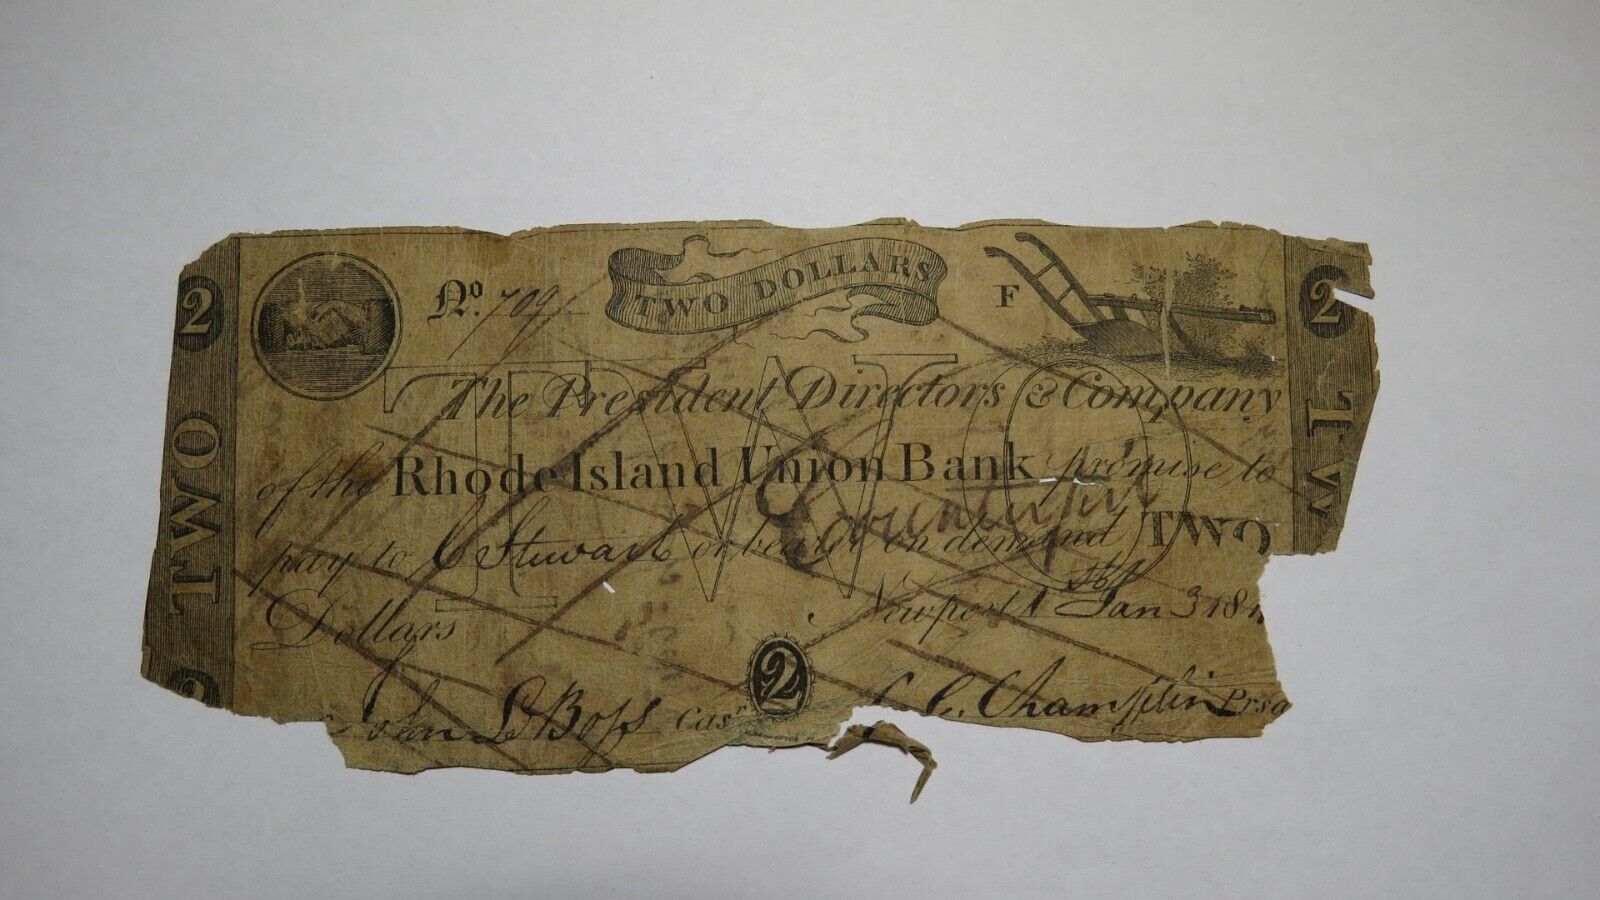 2 No. 709 TWO DOLLARS F 2
TWO TW
The President Directors & Company
of the Rhode Island Union Bank promise to
Counterfeit
pay to C Stewart or bearer on demand TWO
Dollars Newport Jan 3 18
2
John L Boſs Casr C. Champlin Pres
2